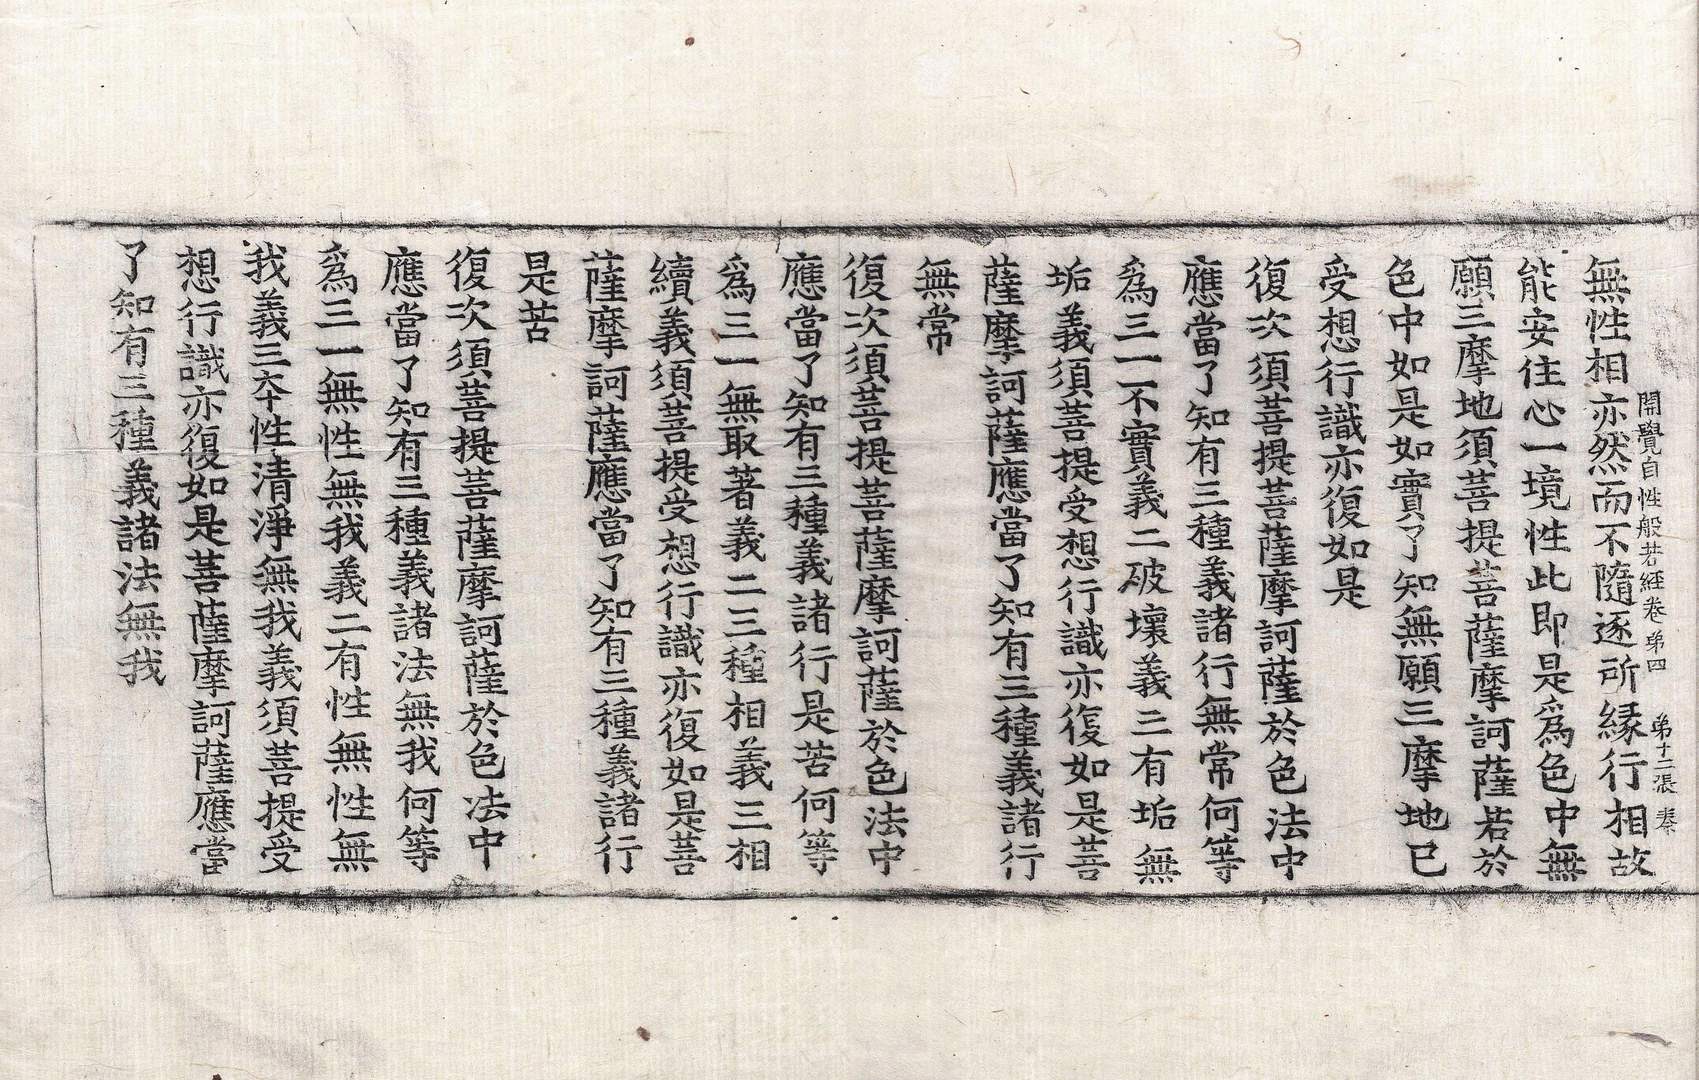 開覺自性般若經卷第四 第十二張 秦
無性相亦然而不隨逐所緣行相故
能安住心一境性此即是爲色中無
願三摩地須菩提菩薩摩訶薩若於
色中如是如實了知無願三摩地已
受想行識亦復如是
復次須菩提菩薩摩訶薩於色法中
應當了知有三種義諸行無常何等
爲三一不實義二破壞義三有垢無
垢義須菩提受想行識亦復如是菩
薩摩訶薩應當了知有三種義諸行
無常
復次須菩提菩薩摩訶薩於色法中
應當了知有三種義諸行是苦何等
爲三一無取著義二三種相義三相
續義須菩提受想行識亦復如是菩
薩摩訶薩應當了知有三種義諸行
是苦
復次須菩提菩薩摩訶薩於色法中
應當了知有三種義諸法無我何等
爲三一無性無我義二有性無性無
我義三夲性清淨無我義須菩提受
想行識亦復如是菩薩摩訶薩應當
了知有三種義諸法無我